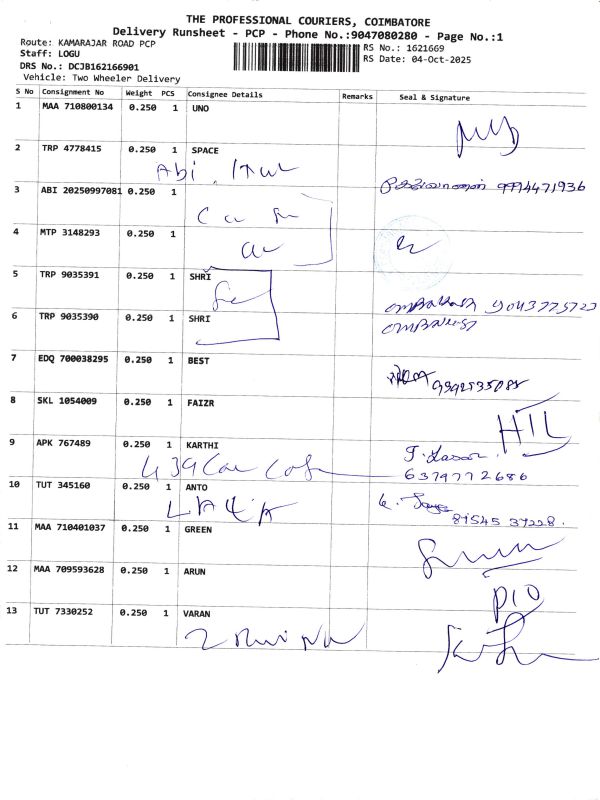 THE PROFESSIONAL COURIERS, COIMBATORE
Delivery Runsheet - PCP - Phone No.:9047080280 - Page No.:1
Route: KAMARAJAR ROAD PCP
RS No.: 1621669
Staff: LOGU
RS Date: 04-Oct-2025
DRS No.: DCJB162166901
Vehicle: Two Wheeler Delivery
S No Consignment No Weight PCS Consignee Details Remarks Seal & Signature
1 MAA 710800134 0.250 1 UNO
2 TRP 4778415 0.250 1 SPACE
Abi
3 ABI 20250997081 0.250 1
9994471936
4 MTP 3148293 0.250 1
5 TRP 9035391 0.250 1 SHRI
6 TRP 9035390 0.250 1 SHRI
7 EDQ 700038295 0.250 1 BEST
8 SKL 1054009 0.250 1 FAIZR
HTL
9 APK 767489 0.250 1 KARTHI
6379772686
10 TUT 345160 0.250 1 ANTO
81545 37228.
11 MAA 710401037 0.250 1 GREEN
12 MAA 709593628 0.250 1 ARUN
13 TUT 7330252 0.250 1 VARAN